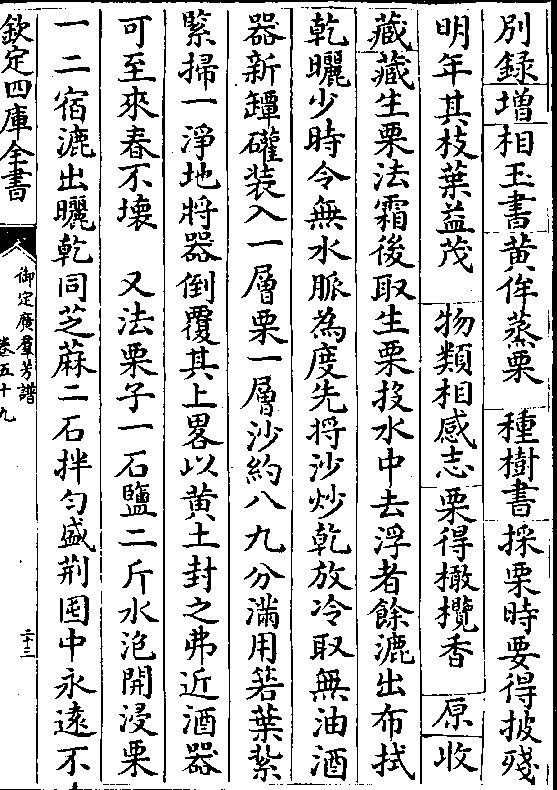 別錄增相玉書黄侔蒸栗　種樹書採栗時要得披殘
明年其枝葉益茂　物類相感志栗得橄欖香　原收
藏藏生栗法霜後取生栗投水中去浮者餘漉出布拭
乾曬少時令無水脈為度先將沙炒乾放冷取無油酒
器新罈罐装入一層栗一層沙約八九分滿用箬葉紮
緊掃一淨地將器倒覆其上畧以黄土封之弗近酒器
可至來春不壞　又法栗子一石鹽二斤水泡開浸栗
一二宿漉出曬乾同芝蔴二石拌匀盛荆囤中永遠不
欽定四庫全書
御定廣羣芳譜
卷五十九
二十三